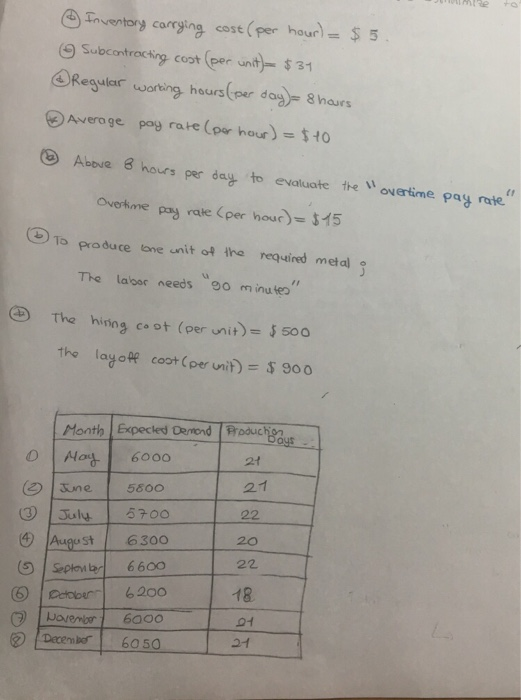 Inventory carrying cost (per hour) = $ 5.
Subcontracting cost (per unit) = $31
Regular working hours (per day) = 8 hours
Average pay rate (per hour) = $10
Above 8 hours per day to evaluate the "overtime pay rate"
Overtime pay rate (per hour) = $15
To produce one unit of the required metal ;
The labor needs "90 minutes"
The hiring cost (per unit) = $ 500
The layoff cost (per unit) = $ 900
Month Expected Demand Production Days
① May 6000 21
② June 5800 21
③ July 5700 22
④ August 6300 20
⑤ September 6600 22
⑥ October 6200 18
⑦ November 6000 21
⑧ December 6050 21